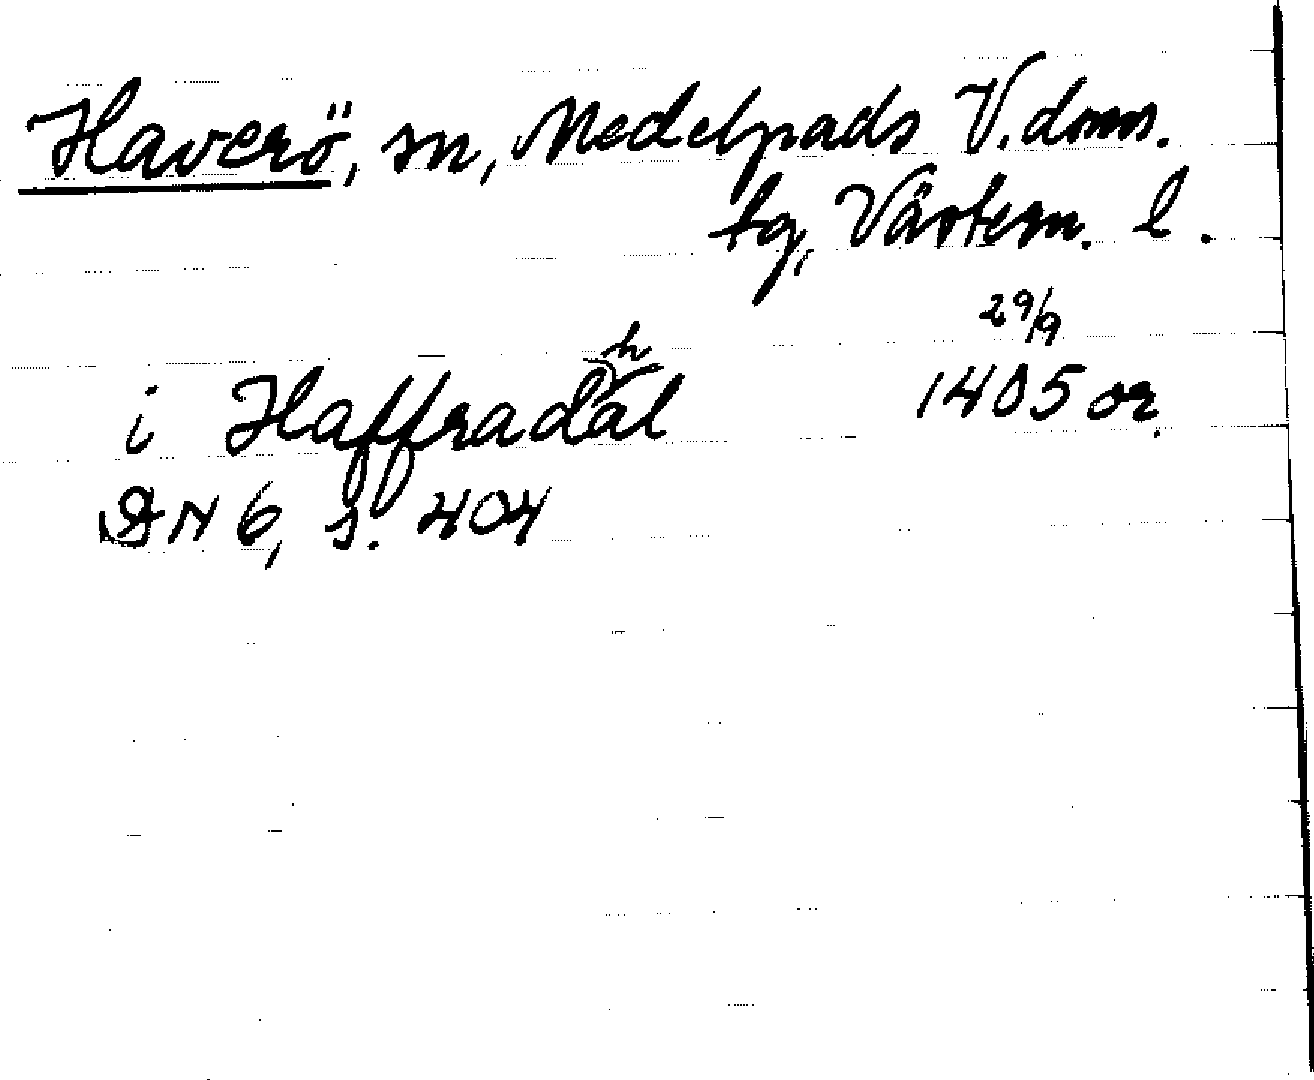 Haverö, sn, Medelpads V. doms.
tg, Västern. l.
29/9
i Haffradhal 1405 or.
DN 6, s. 404